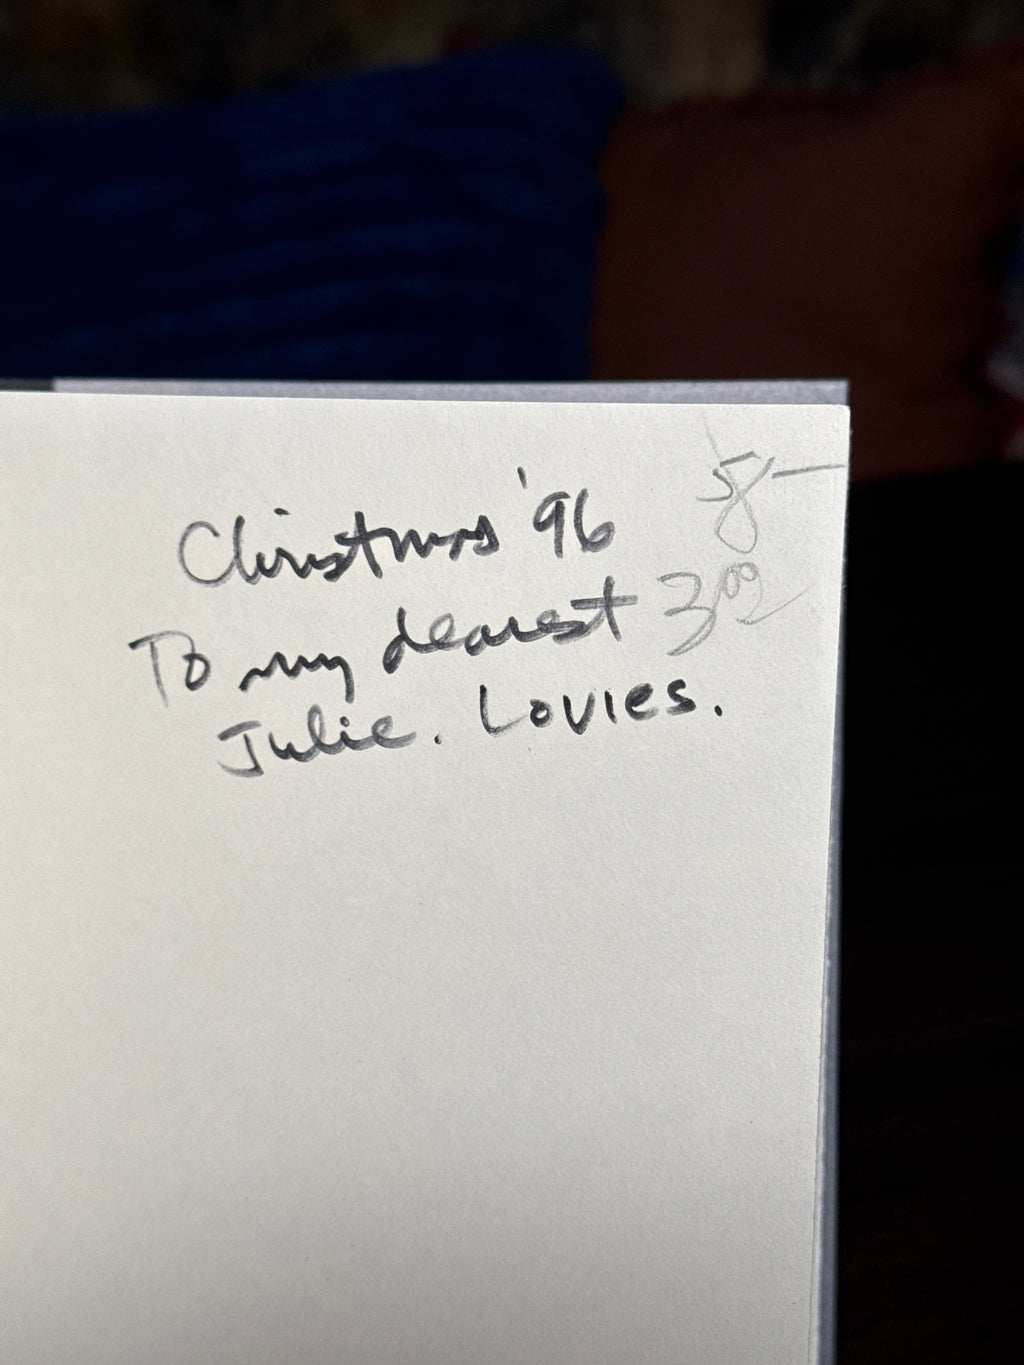 Christmas '96
To my dearest
Julie. Lovies.
3.00